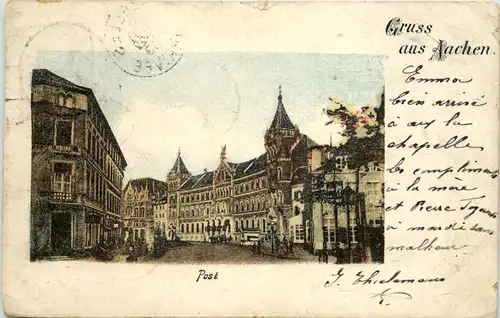 Gruss
aus Aachen.
Emma
bien arrivé
à aix la
chapelle
les compliments
à la mere
et Pierre
à mardi sans
malheur
Post
J. Thielemans